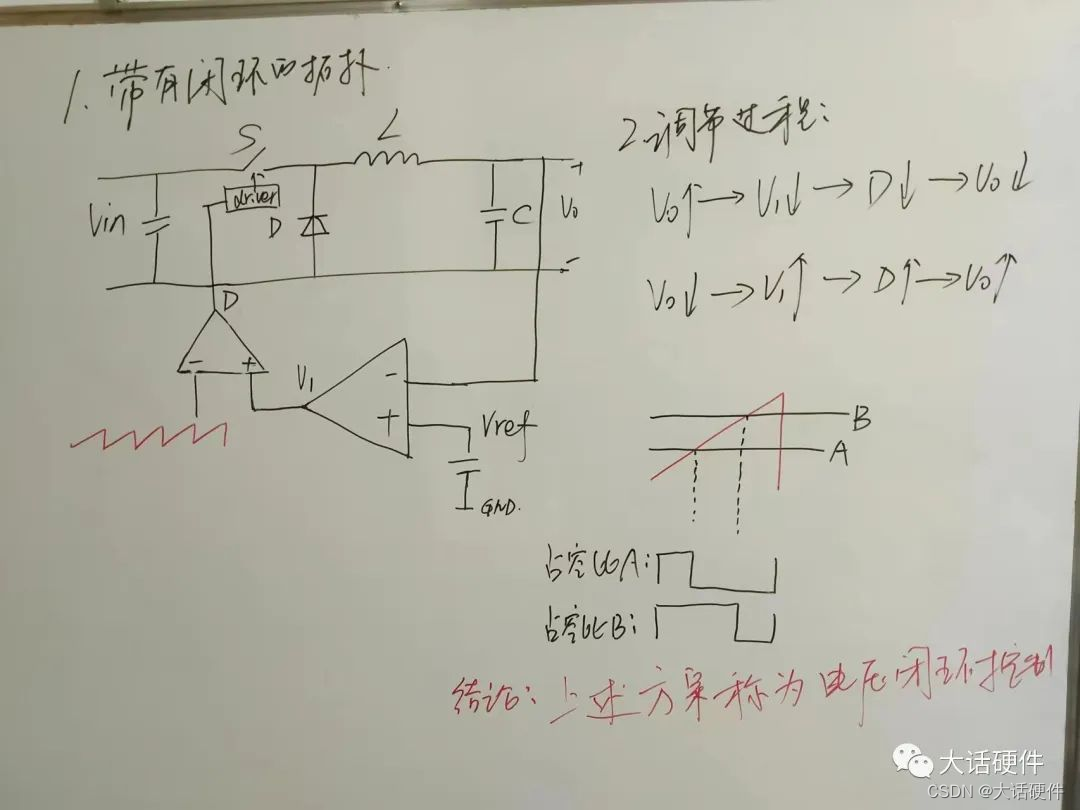 1. 带有闭环的拓扑.
S
L
+
Vin
driver
D
C
Vo
-
D
-
+
V1
-
+
Vref
GND.
2. 调节过程:
Vo↑→V1↓→D↓→Vo↓
Vo↓→V1↑→D↑→Vo↑
B
A
占空比A:
占空比B:
结论: 上述方案称为电压闭环控制
大话硬件
CSDN @大话硬件